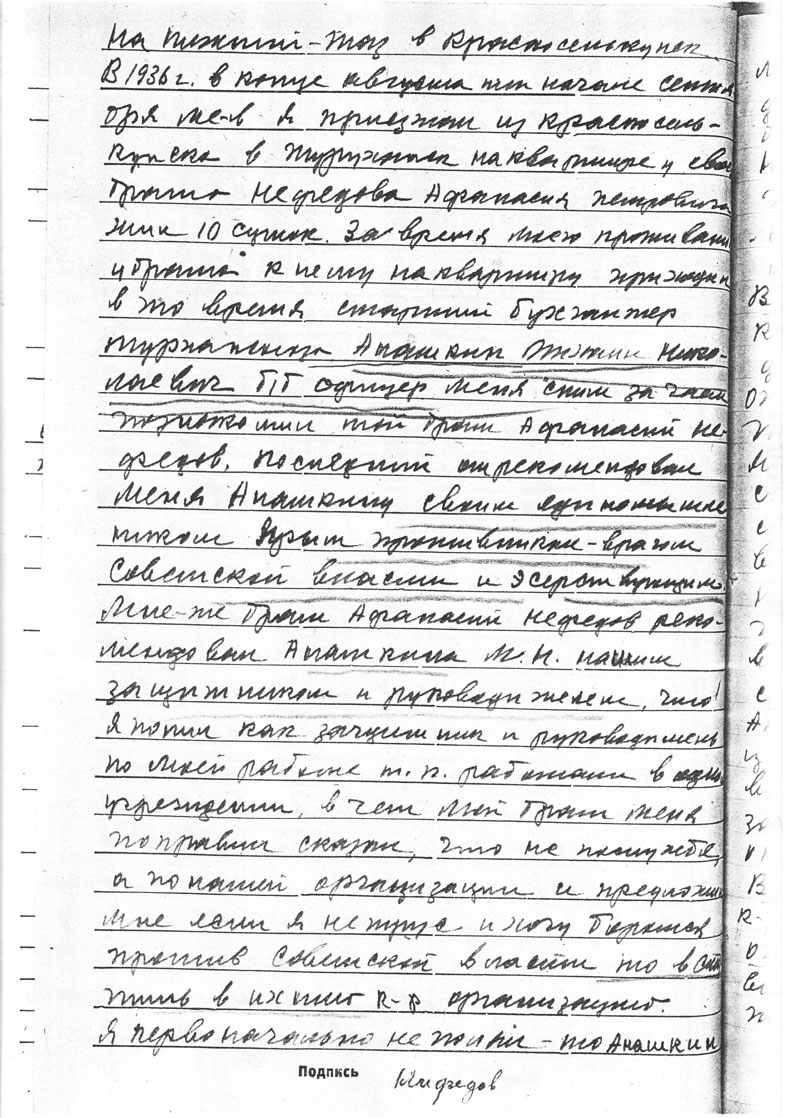 на Тихий-Таз в Красноселькупск.
В 1936 г. в конце августа или начале сентя
бря м-ца я приезжал из Красносель-
купска в Туруханск на квартире у свое
брата Нефедова Афанасия Петровича
жил 10 суток. За время моего проживани
у брата к нему на квартиру приходил
в то время старший бухгалтер
Анашкин Нико-
лаевич офицер меня с ним за чаем
познакомил мой брат Афанасий Не-
федов. Последний отрекомендовал
меня Анашкину своим единомышле
нником ярым противником-врагом
Советской власти и
Мне-же брат Афанасий Нефедов реко-
мендовал Анашкина М.Н. нашим
защитником и руководителем, что
я понял как защитник и руководитель
по моей работе т.к. работали в одно
учреждении, в чем мой брат меня
поправил сказал, что не по службе,
а по нашей организации и предложил
мне если я не трус и хочу бороться
против Советской власти то всту
пить в ихнию к-р организацию.
Я первоначально не понял - то Анашкин
Подпись Нефедов